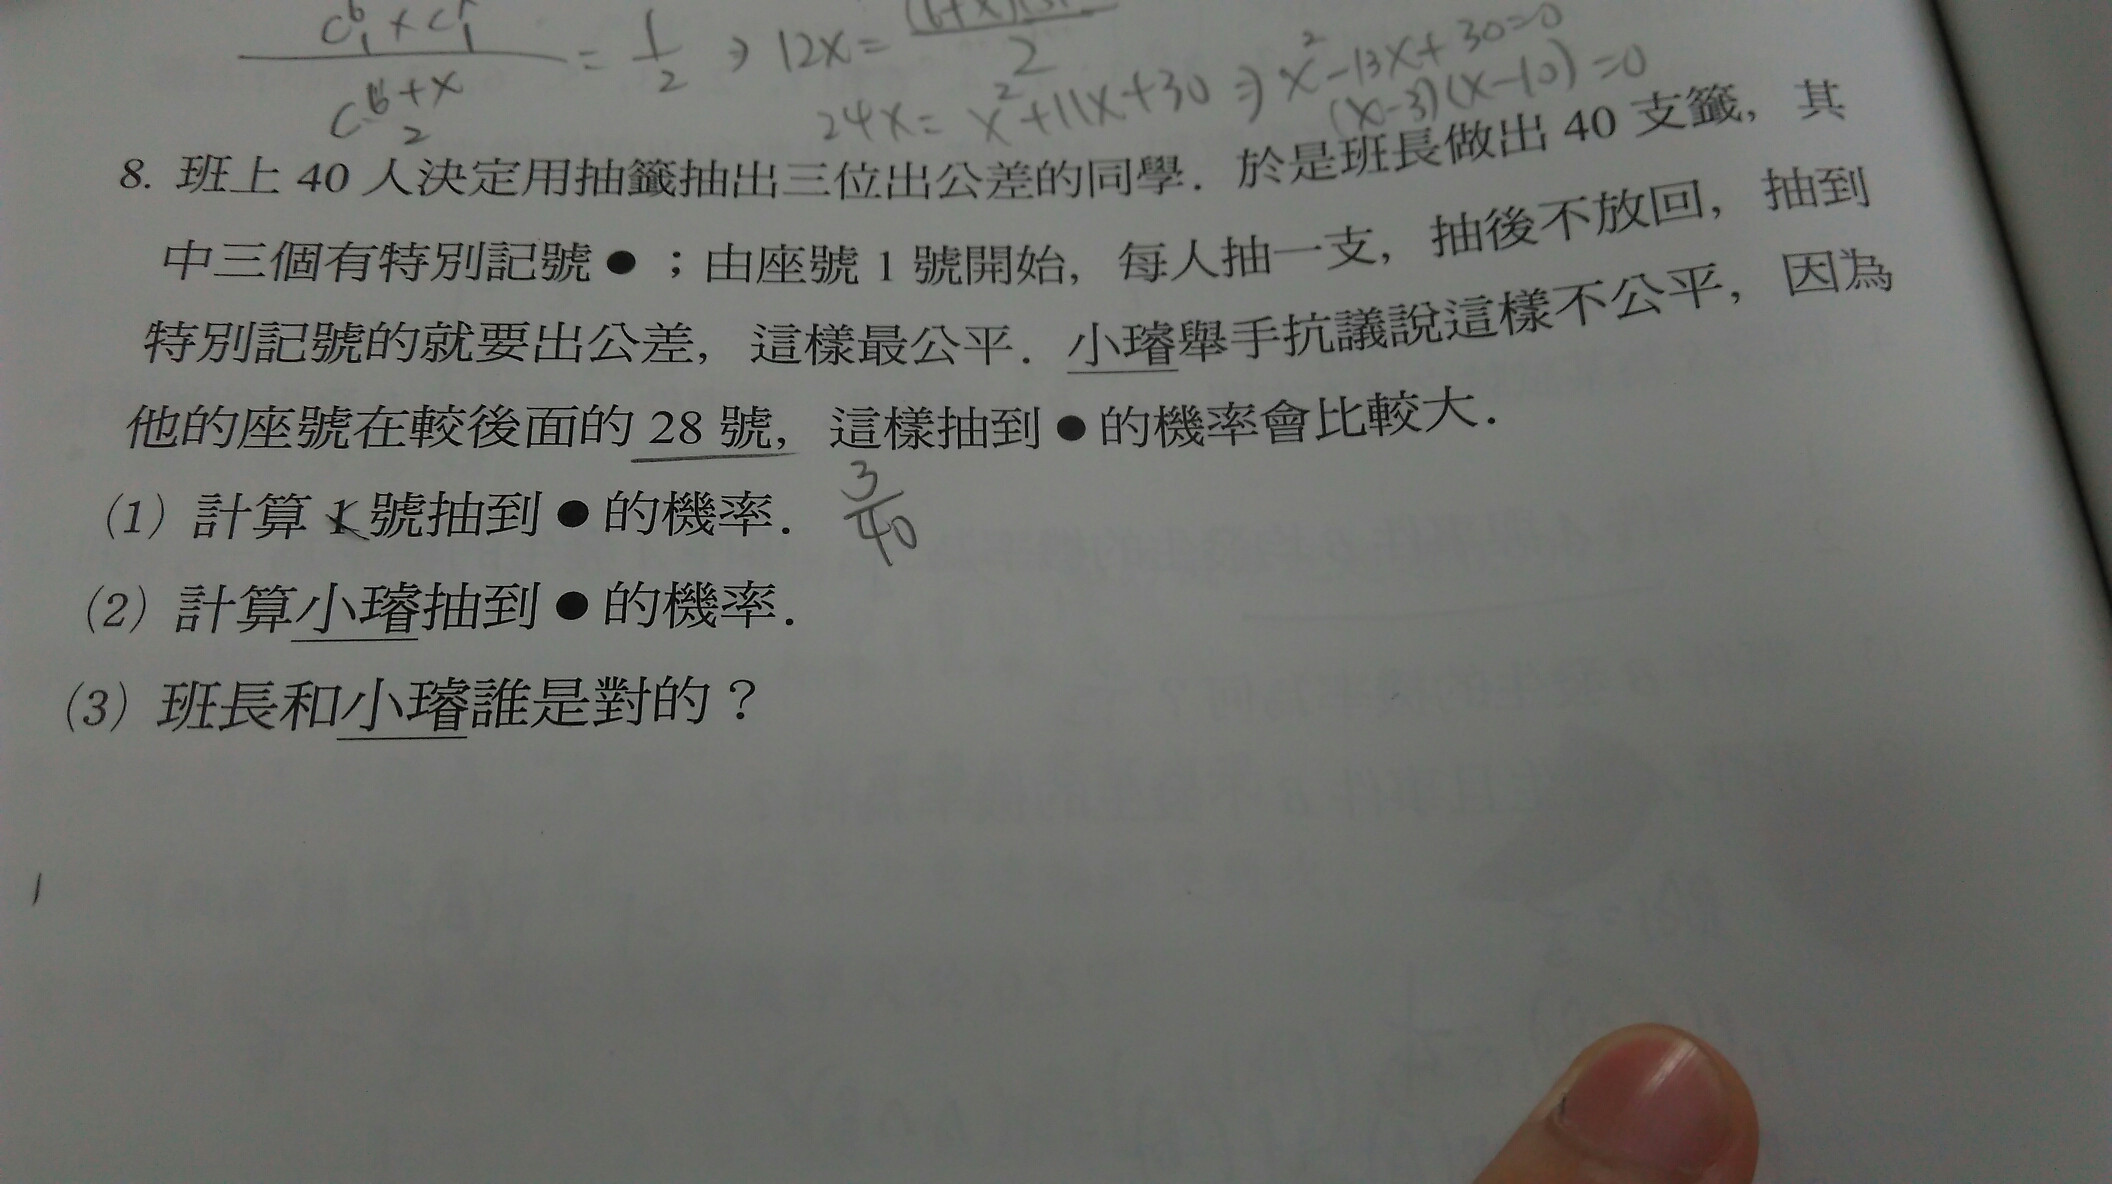 C₁⁶ × C₁ˣ / C₂⁶⁺ˣ = 1/2 ⇒ 12x = (6+x)(5+ / 2
24x = x² + 11x + 30 ⇒ x² - 13x + 30 = 0
(x-3)(x-10) = 0
8. 班上 40 人決定用抽籤抽出三位出公差的同學．於是班長做出 40 支籤，其
中三個有特別記號 ● ；由座號 1 號開始，每人抽一支，抽後不放回，抽到
特別記號的就要出公差，這樣最公平．小璿舉手抗議說這樣不公平，因為
他的座號在較後面的 28 號，這樣抽到 ● 的機率會比較大．
(1) 計算 1 號抽到 ● 的機率． 3/40
(2) 計算小璿抽到 ● 的機率．
(3) 班長和小璿誰是對的？